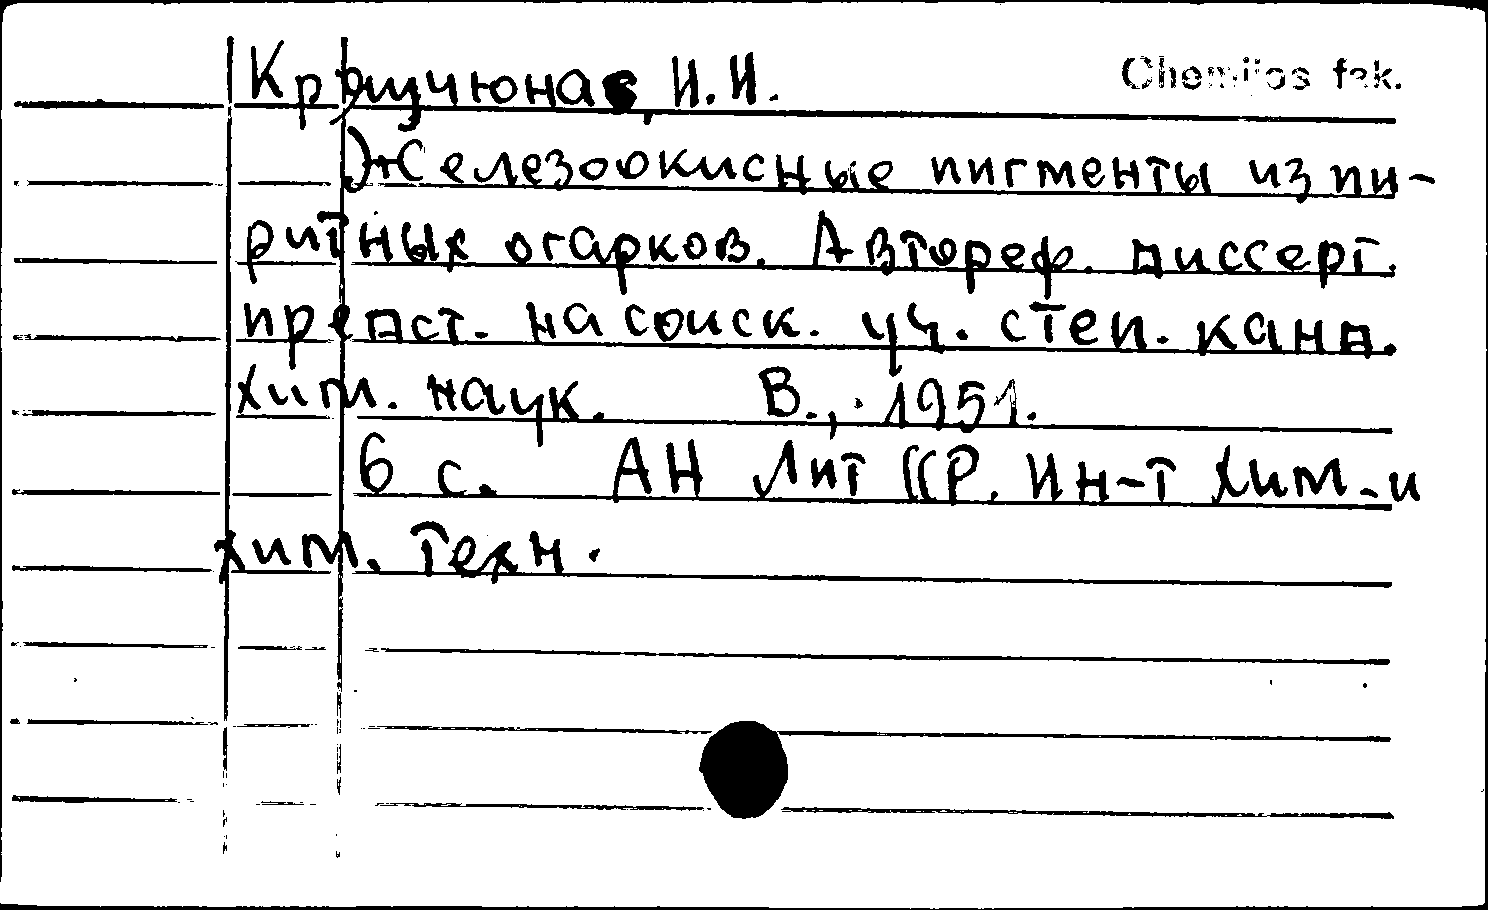 Chemijos fak.
Крищчюнас, И.И.
Железоокисные пигменты из пи-
ритных огарков. Автореф. диссерт.
предст. на соиск. уч. степ. канд.
хим. наук. В., 1951.
6 с. АН Лит ССР. Ин-т хим. и
хим. техн.